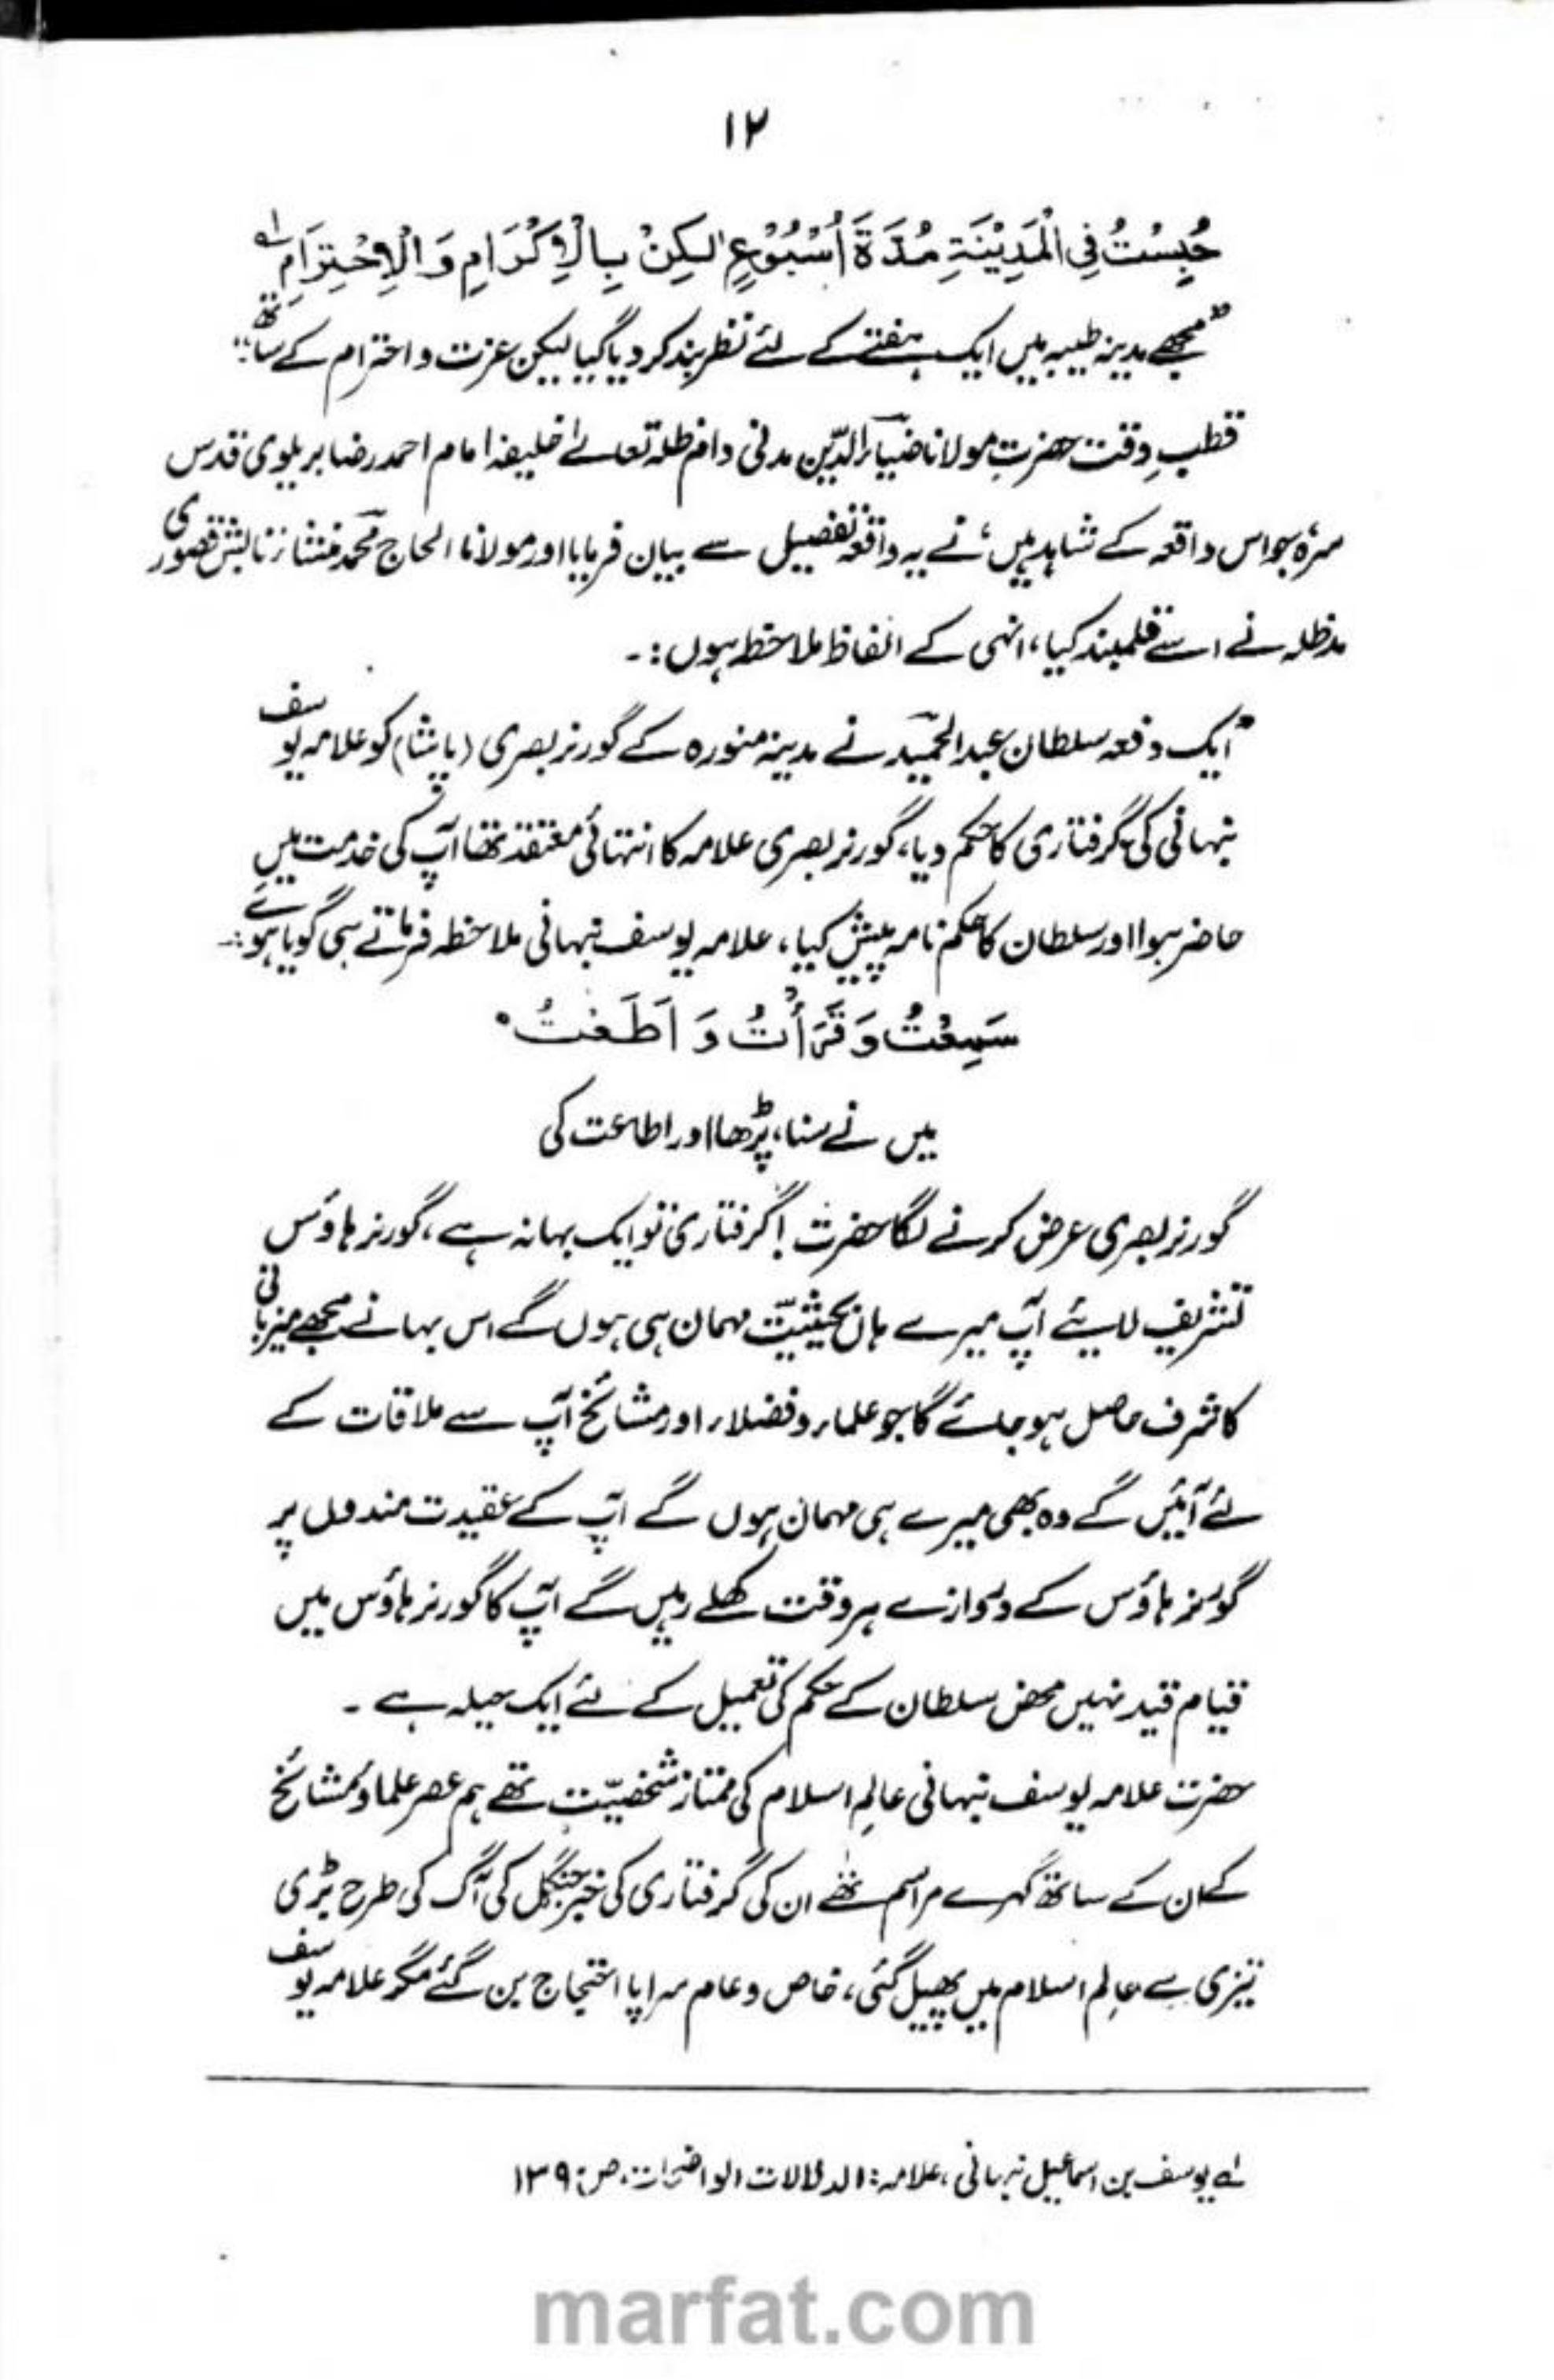 ۱۲
حُبِسْتُ فِی الْمَدِیْنَۃِ مُدَّۃَ اُسْبُوْعٍ لٰکِنْ بِالْاِکْرَامِ وَ الْاِحْتِرَامِ لہ
”مجھے مدینہ طیبہ میں ایک ہفتے کے لئے نظر بند کر دیا گیا لیکن عزت و احترام کے ساتھ“
قطبِ وقت حضرت مولانا ضیاء الدّین مدنی دام ظلہ تعالےٰ خلیفہ امام احمد رضا بریلوی قدس
سرہٗ جو اس واقعہ کے شاہد ہیں، نے یہ واقعہ تفصیل سے بیان فرمایا اور مولانا الحاج محمد منشا تابش قصوری
مدظلہ نے اسے قلمبند کیا، انہی کے الفاظ ملاحظہ ہوں :۔
”ایک دفعہ سلطان عبدالحمید نے مدینہ منورہ کے گورنر بصری (پاشا) کو علامہ یوسف
نبہانی کی گرفتاری کا حکم دیا، گورنر بصری علامہ کا انتہائی معتقد تھا آپ کی خدمت میں
حاضر ہوا اور سلطان کا حکم نامہ پیش کیا، علامہ یوسف نبہانی ملاحظہ فرماتے ہی گویا ہوئے :۔
سَمِعْتُ وَ قَرَأْتُ وَ اَطَعْتُ ۰
میں نے سنا، پڑھا اور اطاعت کی
گورنر بصری عرض کرنے لگا حضرت ! گرفتاری تو ایک بہانہ ہے، گورنر ہاؤس
تشریف لائیے آپ میرے ہاں بحیثیّت مہمان ہی ہوں گے اس بہانے مجھے میزبانی
کا شرف حاصل ہو جائے گا جو علماء و فضلاء اور مشائخ آپ سے ملاقات کے
لئے آئیں گے وہ بھی میرے ہی مہمان ہوں گے آپ کے عقیدت مندوں پر
گورنر ہاؤس کے دروازے ہر وقت کھلے رہیں گے آپ کا گورنر ہاؤس میں
قیام قید نہیں محض سلطان کے حکم کی تعمیل کے لئے ایک حیلہ ہے ۔
حضرت علامہ یوسف نبہانی عالمِ اسلام کی ممتاز شخصیّت تھے ہم عصر علماء و مشائخ
کے ان کے ساتھ گہرے مراسم تھے ان کی گرفتاری کی خبر جنگل کی آگ کی طرح بڑی
تیزی سے عالمِ اسلام میں پھیل گئی، خاص و عام سراپا احتجاج بن گئے مگر علامہ یوسف
لہ یوسف بن اسماعیل نبہانی، علامہ : الدلالات الواضحات، ص : ۱۳۹
marfat.com